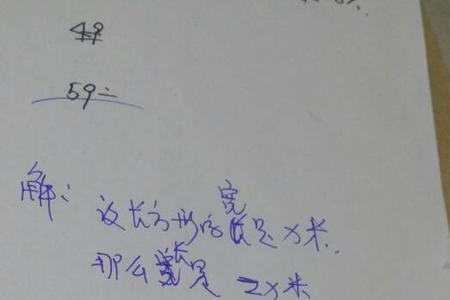 49
59÷
解：设长方形的宽是x米.
那么长是 2x米